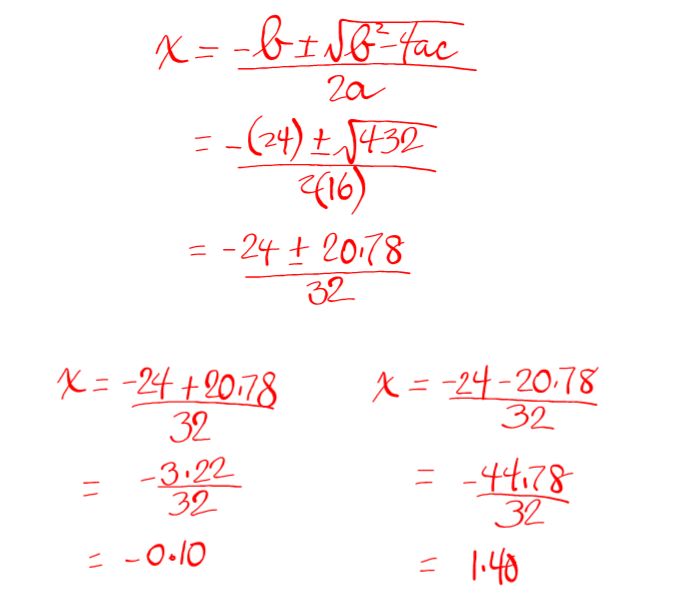 x = (-b ± √(b² - 4ac)) / 2a
= (-(24) ± √432) / 2(16)
= (-24 ± 20.78) / 32
x = (-24 + 20.78) / 32
= -3.22 / 32
= -0.10
x = (-24 - 20.78) / 32
= -44.78 / 32
= 1.40